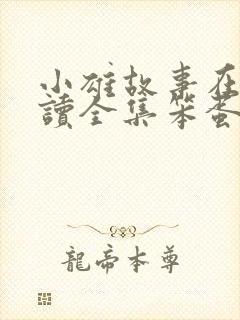 小雄故事在
讀全集笨蛋
龍帝本尊